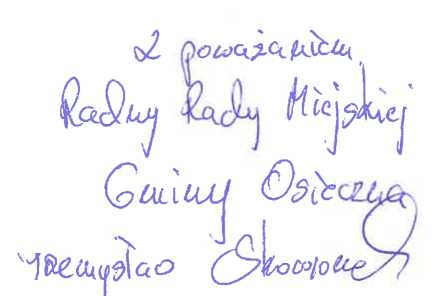 Z poważaniem
Radny Rady Miejskiej
Gminy Osieczna
Przemysław Skowronek